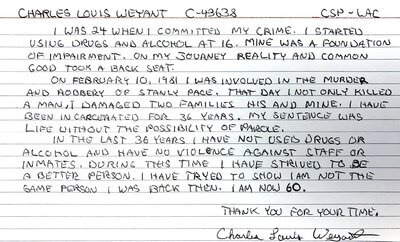 CHARLES LOUIS WEYANT C-43638 CSP-LAC
I WAS 24 WHEN I COMMITTED MY CRIME. I STARTED
USING DRUGS AND ALCOHOL AT 16. MINE WAS A FOUNDATION
OF IMPAIRMENT. ON MY JOURNEY REALITY AND COMMON
GOOD TOOK A BACK SEAT.
ON FEBRUARY 10, 1981 I WAS INVOLVED IN THE MURDER
AND ROBBERY OF STANLY PACE. THAT DAY I NOT ONLY KILLED
A MAN, I DAMAGED TWO FAMILIES HIS AND MINE. I HAVE
BEEN INCARCERATED FOR 36 YEARS. MY SENTENCE WAS
LIFE WITHOUT THE POSSIBILITY OF PAROLE.
IN THE LAST 36 YEARS I HAVE NOT USED DRUGS OR
ALCOHOL AND HAVE NO VIOLENCE AGAINST STAFF OR
INMATES. DURING THIS TIME I HAVE STRIVED TO BE
A BETTER PERSON. I HAVE TRIED TO SHOW I AM NOT THE
SAME PERSON I WAS BACK THEN. I AM NOW 60.
THANK YOU FOR YOUR TIME.
Charles Louis Weyant